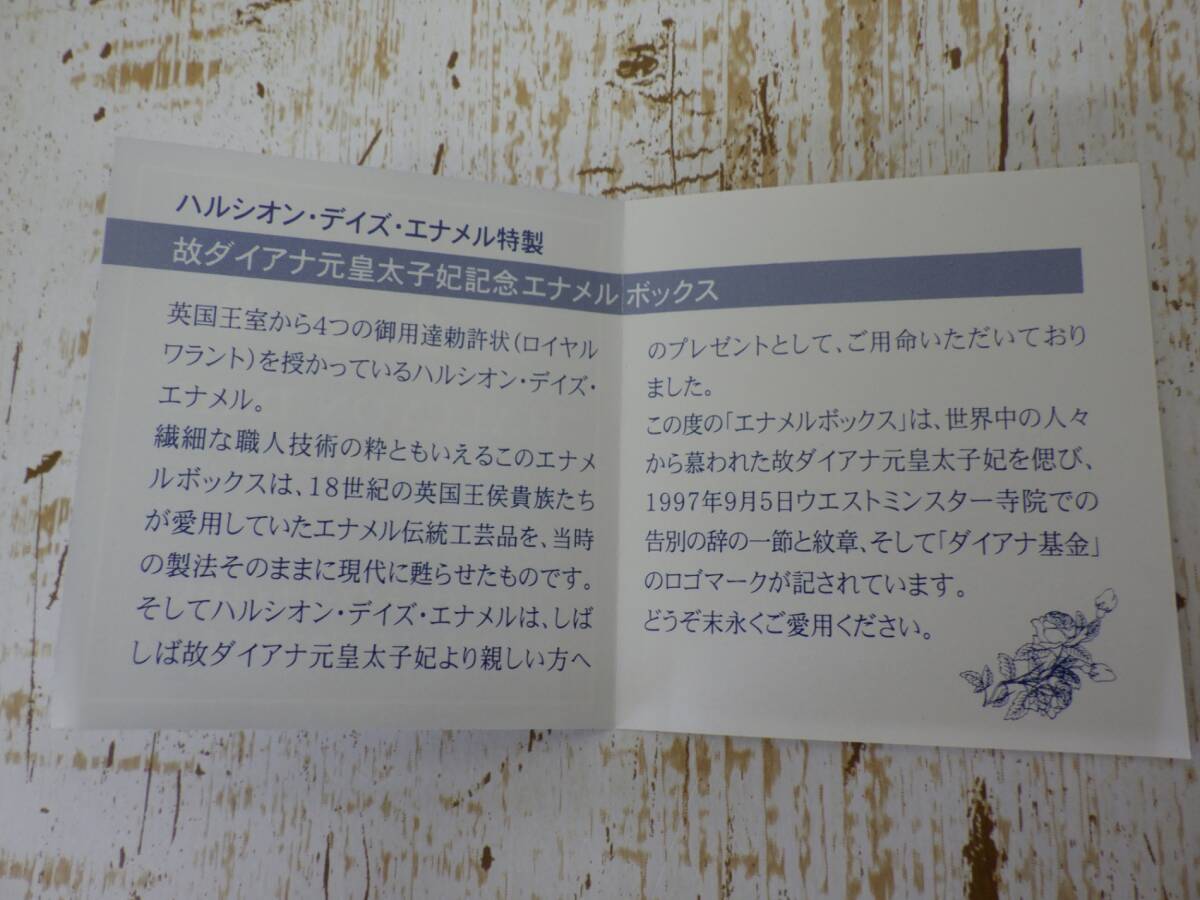 ハルシオン・デイズ・エナメル特製
故ダイアナ元皇太子妃記念エナメルボックス
英国王室から4つの御用達勅許状(ロイヤル
ワラント)を授かっているハルシオン・デイズ・
エナメル。
繊細な職人技術の粋ともいえるこのエナメ
ルボックスは、18世紀の英国王侯貴族たち
が愛用していたエナメル伝統工芸品を、当時
の製法そのままに現代に甦らせたものです。
そしてハルシオン・デイズ・エナメルは、しば
しば故ダイアナ元皇太子妃より親しい方へ
のプレゼントとして、ご用命いただいており
ました。
この度の「エナメルボックス」は、世界中の人々
から慕われた故ダイアナ元皇太子妃を偲び、
1997年9月5日ウエストミンスター寺院での
告別の辞の一節と紋章、そして「ダイアナ基金」
のロゴマークが記されています。
どうぞ末永くご愛用ください。